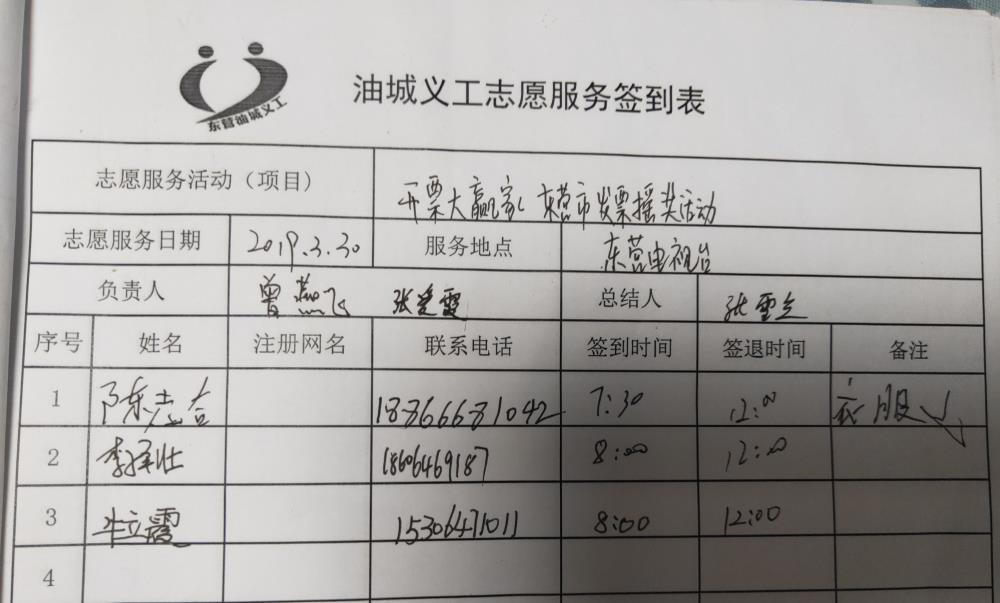 东营油城义工
油城义工志愿服务签到表
志愿服务活动（项目） 开票大赢家 东营市发票摇奖活动
志愿服务日期 2019.3.30 服务地点 东营电视台
负责人 曾燕飞 张爱霞 总结人 张
序号 姓名 注册网名 联系电话 签到时间 签退时间 备注
1 陈志合 18866681042 7:30 12:00 衣服
2 李 壮 18606469187 8:00 12:00
3 牛立霞 15306471011 8:00 12:00
4